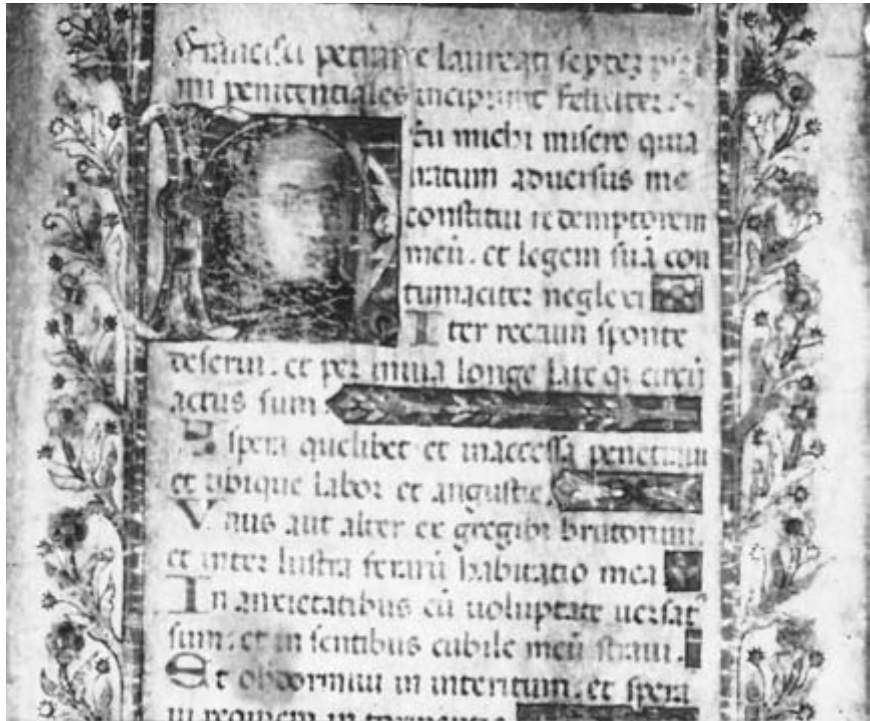 Francisci petrarce laureati septez psal
mi penitentiales incipiunt feliciter
eu michi misero quia
iratum aduersus me
constitui redemptorem
meū. et legem suā con
tumaciter neglexi
Iter rectum sponte
deserui. et per inuia longe late qz circū
actus sum.
Aspera quelibet et inaccessa penetraui
et ubique labor et angustie.
Vnus aut alter ex gregibz brutorum.
et inter lustra ferarū habitatio mea
In anxietatibus cū uoluptate uersat
sum. et in sentibus cubile meū straui.
Et obdormiui in interitum. et spera
ui requiem in tormentis